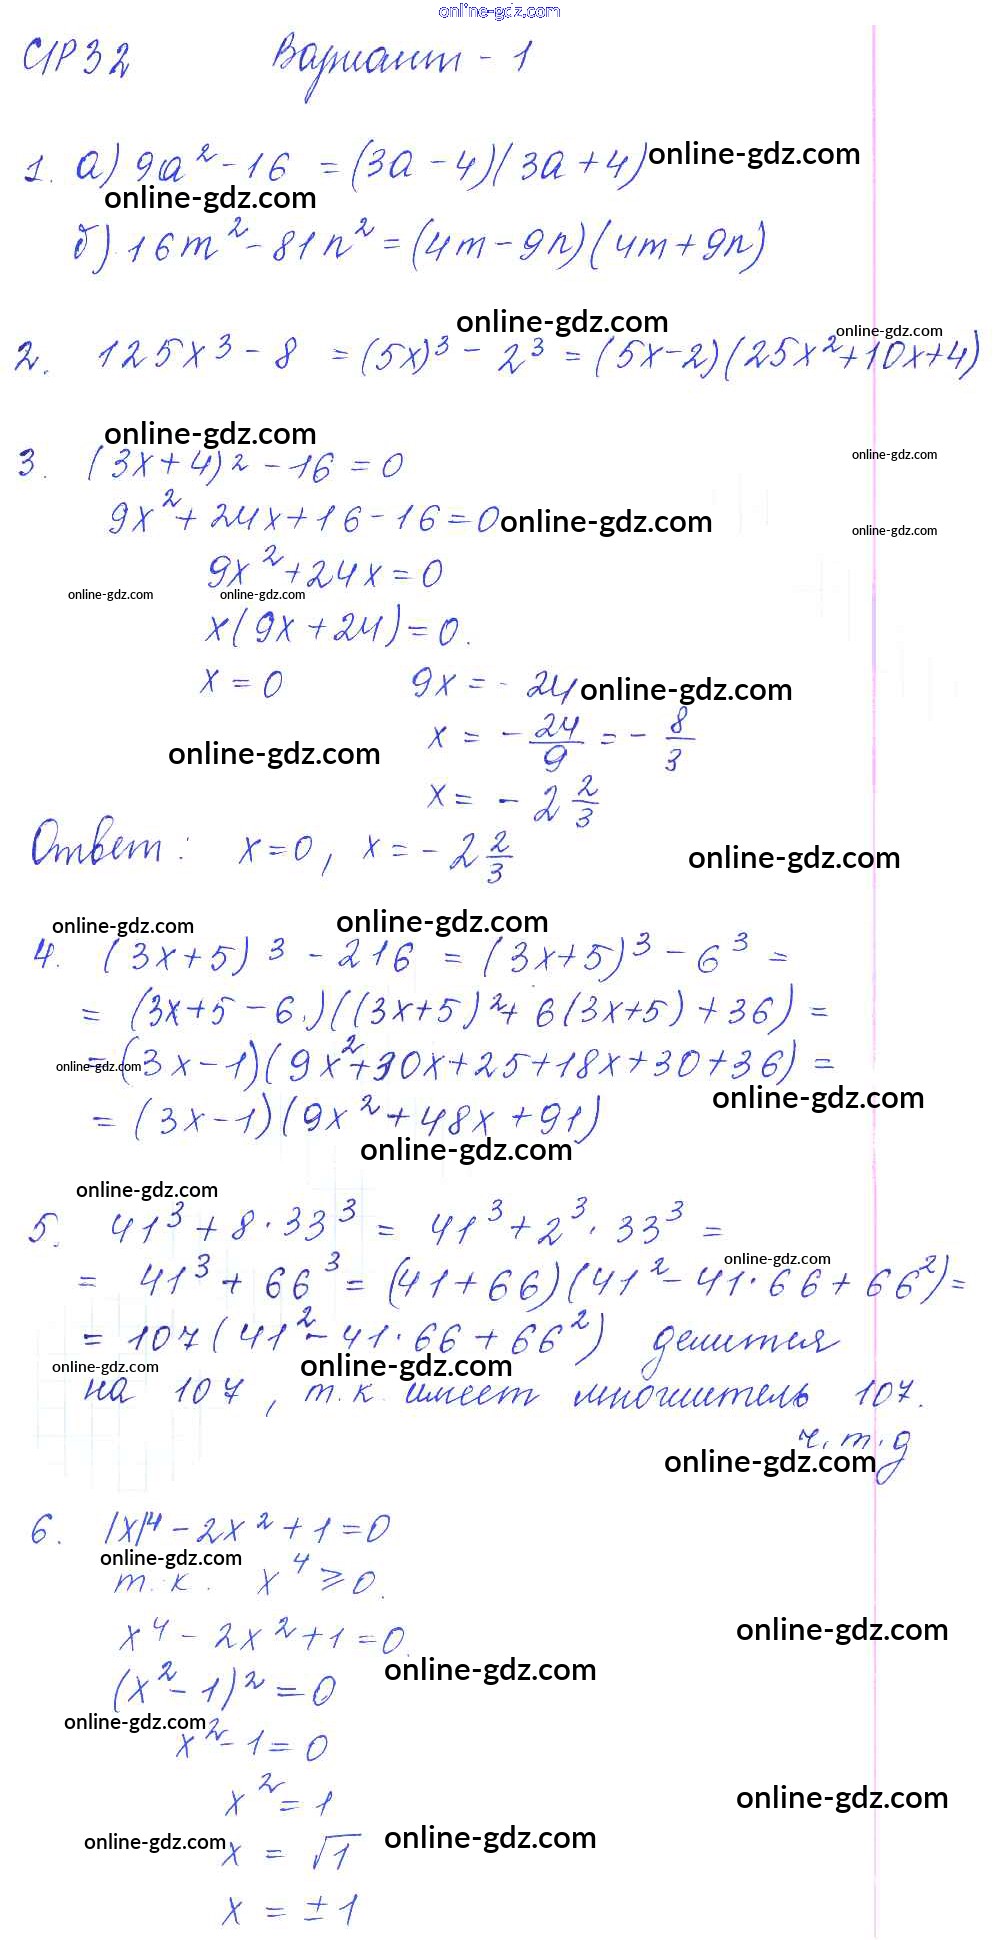 online-gdz.com
С/Р 32 Вариант - 1
1. а) 9a² - 16 = (3a - 4)(3a + 4) online-gdz.com
online-gdz.com
б) 16m² - 81n² = (4m - 9n)(4m + 9n)
online-gdz.com online-gdz.com
2. 125x³ - 8 = (5x)³ - 2³ = (5x-2)(25x²+10x+4)
online-gdz.com
3. (3x+4)² - 16 = 0 online-gdz.com
9x² + 24x + 16 - 16 = 0 online-gdz.com online-gdz.com
9x² + 24x = 0
online-gdz.com online-gdz.com
x(9x + 24) = 0.
x = 0 9x = - 24 online-gdz.com
x = - 24/9 = - 8/3
online-gdz.com
x = - 2 2/3
Ответ: x=0, x = - 2 2/3
online-gdz.com
online-gdz.com online-gdz.com
4. (3x+5)³ - 216 = (3x+5)³ - 6³ =
= (3x+5 - 6)((3x+5)² + 6(3x+5) + 36) =
online-gdz.com = (3x - 1)(9x²+30x+25+18x+30+36) =
online-gdz.com
= (3x-1)(9x² + 48x + 91)
online-gdz.com
online-gdz.com
5. 41³ + 8 · 33³ = 41³ + 2³ · 33³ =
online-gdz.com
= 41³ + 66³ = (41 + 66)(41² - 41·66 + 66²) =
= 107(41² - 41·66 + 66²) делится
online-gdz.com online-gdz.com
на 107, т.к. имеет множитель 107.
ч.т.д
online-gdz.com
6. |x|⁴ - 2x² + 1 = 0
online-gdz.com
т.к. x⁴ ⩾ 0.
x⁴ - 2x² + 1 = 0. online-gdz.com
online-gdz.com
(x² - 1)² = 0
online-gdz.com
x² - 1 = 0
x² = 1 online-gdz.com
online-gdz.com online-gdz.com
x = √1
x = ± 1